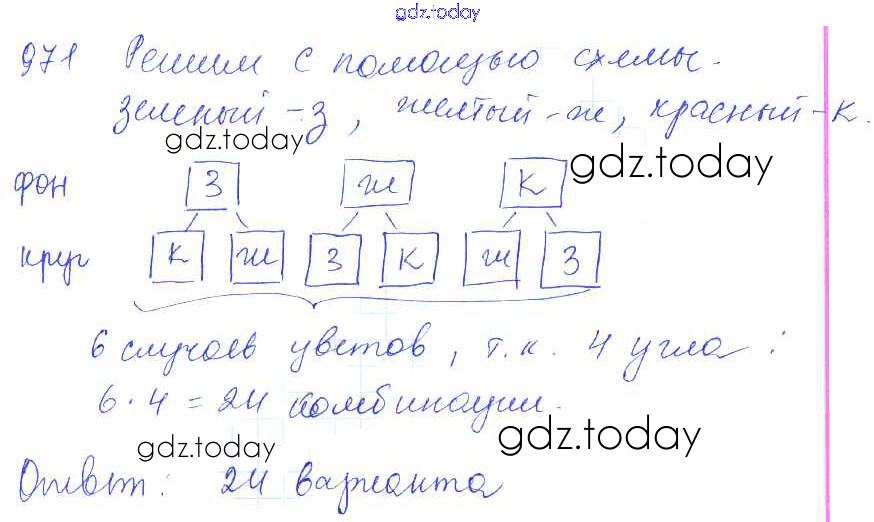 gdz.today
971 Решим с помощью схемы.
зеленый - з, желтый - ж, красный - к.
gdz.today
gdz.today
фон З Ж К
круг К Ж З К Ж З
6 случаев цветов, т.к. 4 угла:
6 · 4 = 24 комбинации.
gdz.today
gdz.today
Ответ: 24 варианта